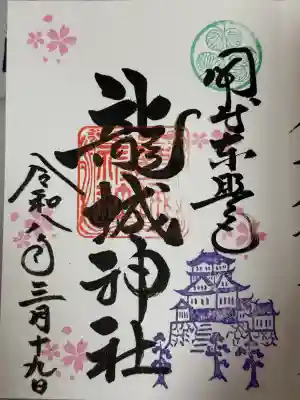 岡崎東照宮
龍城神社
令和八年三月十九日